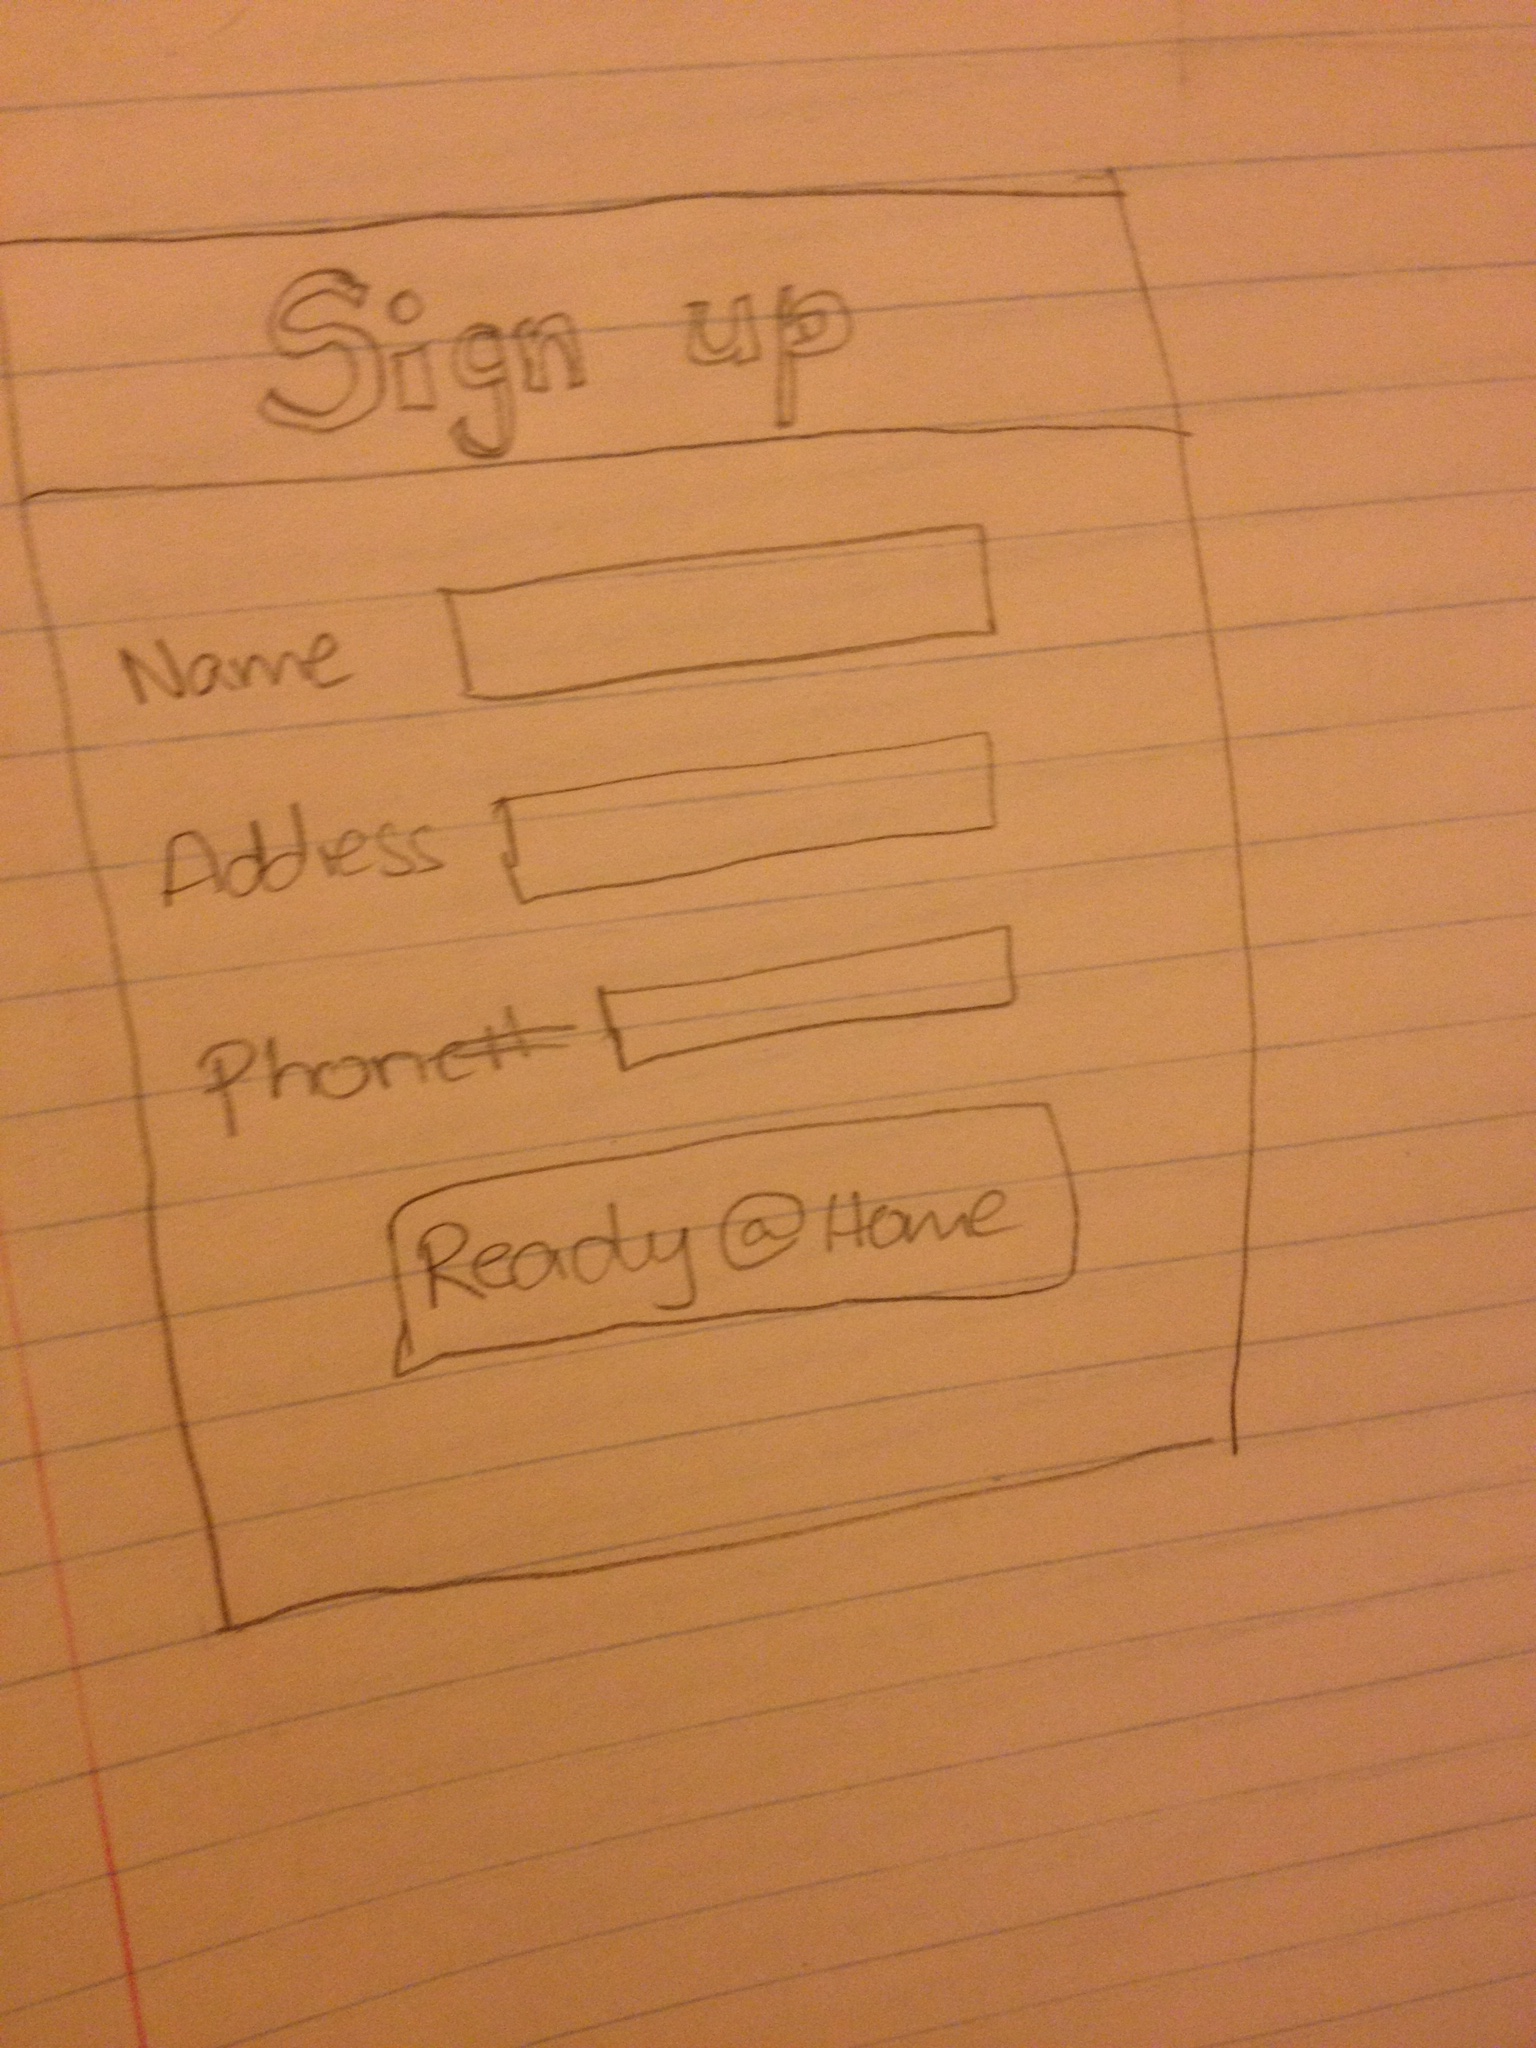 Sign up
Name
Address
Phone#
Ready@Home